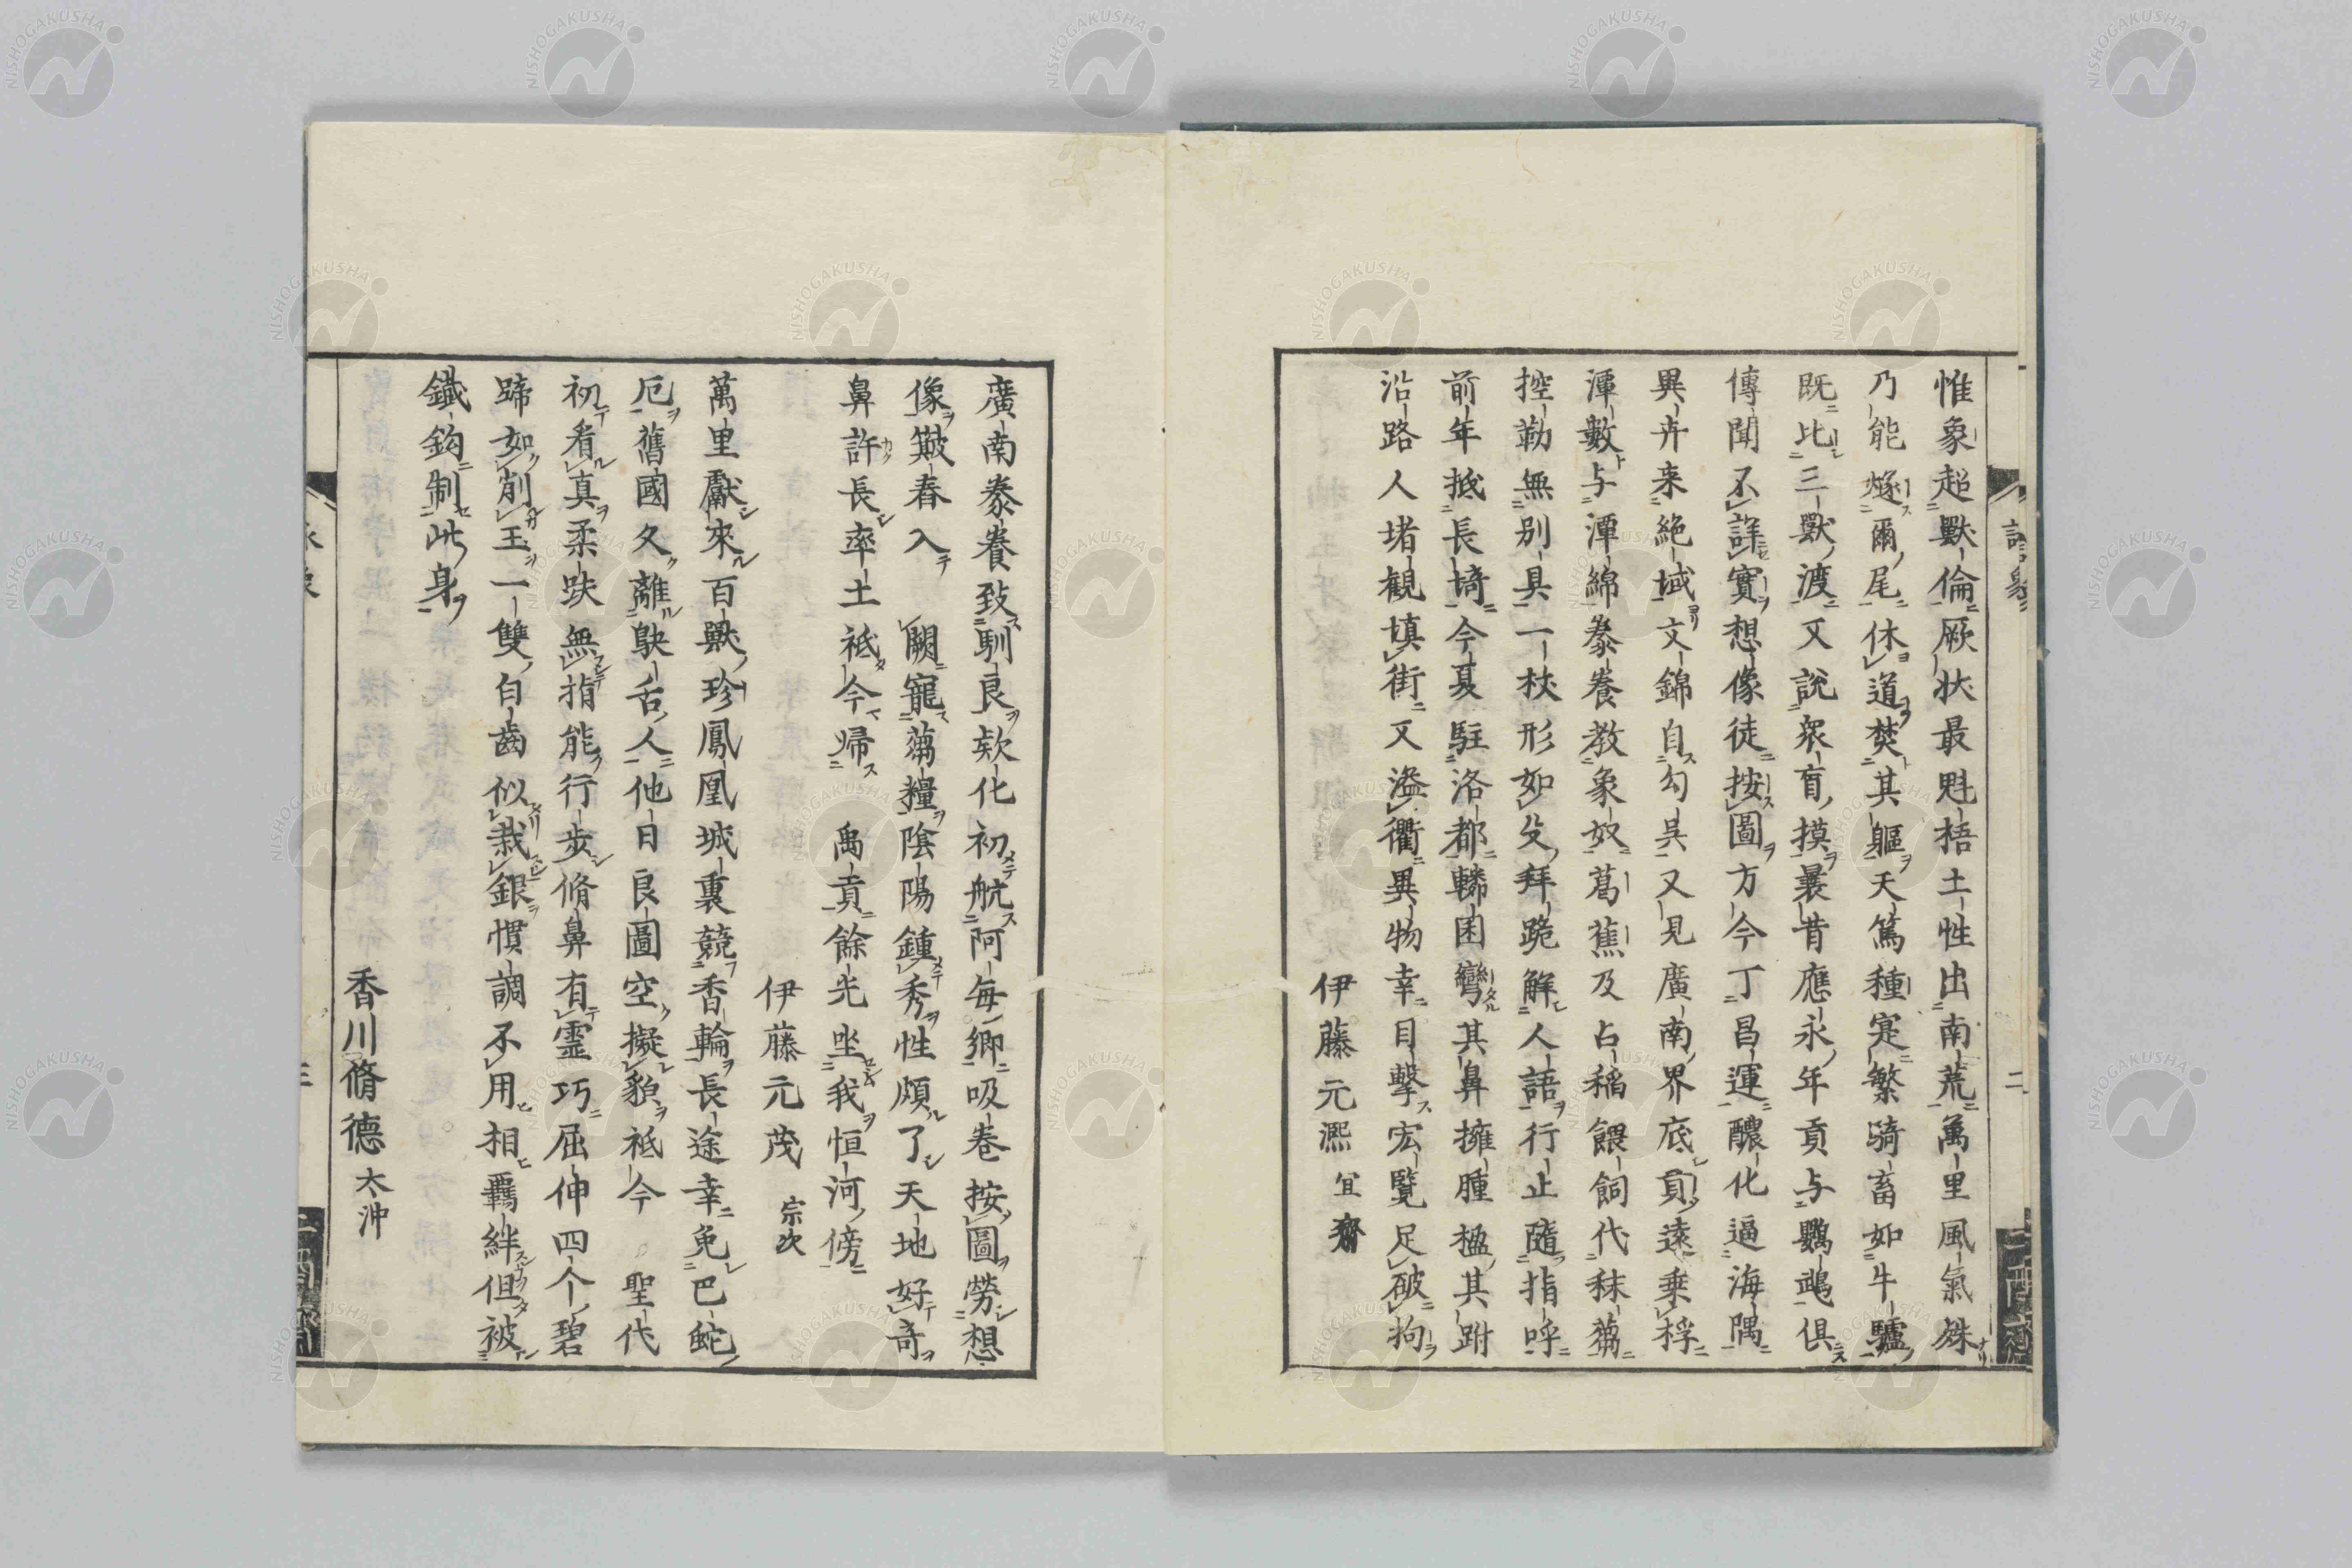 惟象超獸倫厥狀最魁梧土性出南荒萬里風氣殊
乃能燧爾尾休道焚其軀天篤種寔繁騎畜如牛驢
既比三獸渡又說衆盲摸曩昔應永年貢与鸚鵡俱
傳聞不詳實想像徒按圖方今丁昌運醲化逼海隅
異卉来絶域文錦自勾吳又見廣南界底貢遠乗桴
潭數与潭綿豢養教象奴葛蕉及占稲餵飼代秣蒭
控勒無别具一杖形如殳拜跪解人語行止隨指呼
前年抵長埼今夏駐洛都轔囷彎其鼻擁腫楹其跗
沿路人堵觀填街又溢衢異物幸目擊宏覽足破拘
伊藤元熈 宜齋
廣南豢養致馴良欸化初航阿毎鄉吸巻按圖勞想
像皷春入 闕寵蒭糧陰陽鍾秀性頗了天地好奇
鼻許長率土祗今帰 禹貢餘光坐我恒河傍
伊藤元茂 宗次
萬里獻來百獸珍鳳凰城裏競香輪長途幸免巴蛇
厄舊國久離鴃舌人他日良圖空擬貌祗今 聖代
初看真柔趺無指能行步脩鼻有霊巧屈伸四个碧
蹄如削玉一雙白齒似栽銀慣調不用相羈絆但被
鐵鈎制此身
香川脩德 太沖
詠象
二
NISHOGAKUSHA